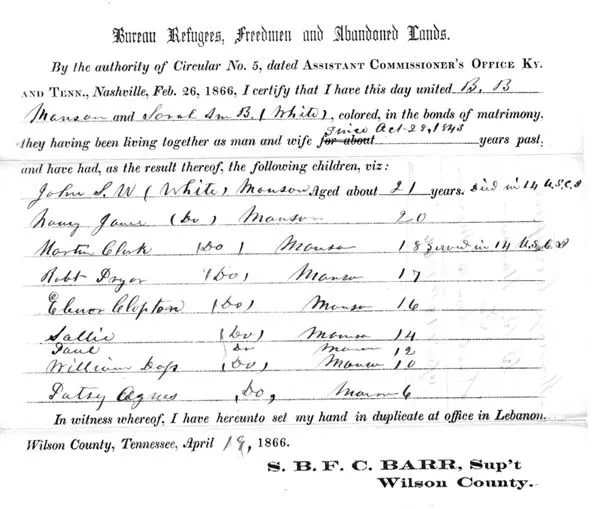 Bureau Refugees, Freedmen and Abandoned Lands.
By the authority of Circular No. 5, dated Assistant Commissioner's Office Ky.
and Tenn., Nashville, Feb. 26, 1866, I certify that I have this day united B. B
Manson and Sarah Ann B. (White), colored, in the bonds of matrimony,
they having been living together as man and wife for about since Oct. 28, 1843 years past,
and have had, as the result thereof, the following children, viz:
John S. W (White) Manson Aged about 21 years. Died in 14 U.S.C.I
Nancy Jane (Do) Manson 20
Martin Clark (Do) Manson 18 served in 14 U.S.C.I
Robt Pryor (Do) Manson 17
Elenor Clopton (Do) Manson 16
Sallie (Do) Manson 14
Do Manson 12
William (Do) Manson 10
Patsy Agnes Do, Manson 6
In witness whereof, I have hereunto set my hand in duplicate at office in Lebanon,
Wilson County, Tennessee, April 19, 1866.
S. B. F. C. BARR, Sup't
Wilson County.